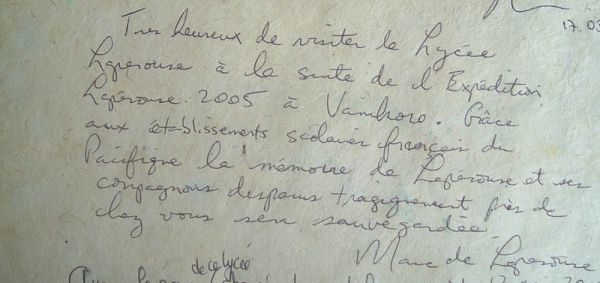 17.03
Tres heureux de visiter le Lycée
Laperouse à la suite de l'Expédition
Lapérouse 2005 à Vanikoro. Grâce
aux établissements scolaires français du
Pacifique la mémoire de Laperouse et ses
compagnons disparus tragiquement près de
chez vous sera sauvegardée
Marc de Laperouse
de ce lycée